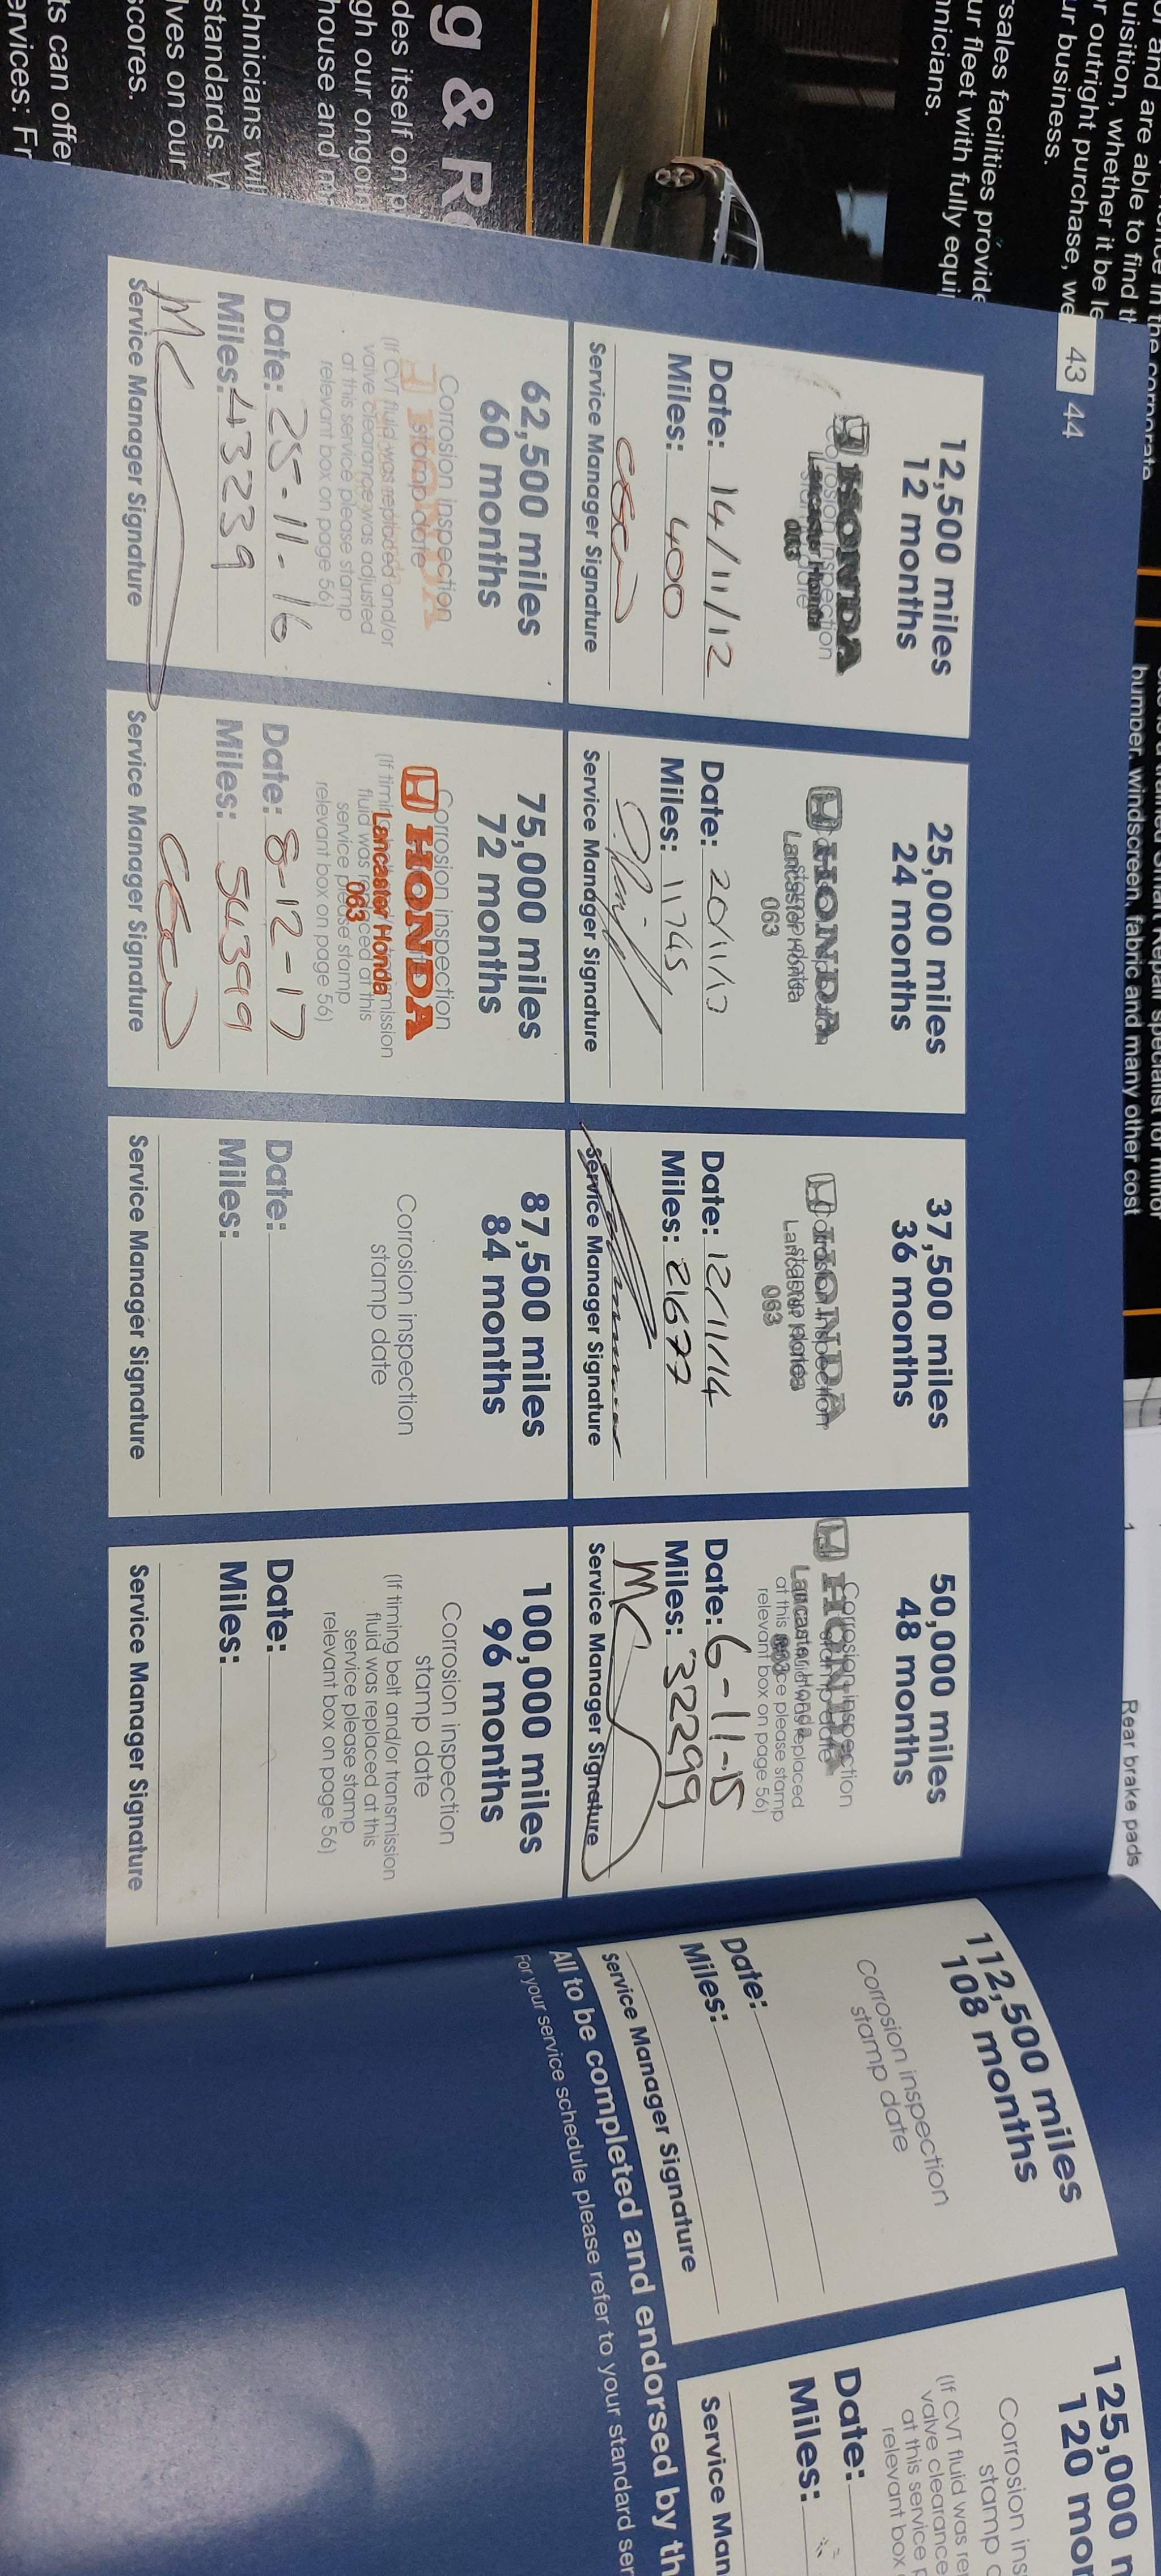 43 44
12,500 miles
12 months
HONDA
Corrosion inspection
Lancaster Honda
063
Date: 14/11/12
Miles: 400
Service Manager Signature
25,000 miles
24 months
HONDA
Lancaster Honda
063
Date: 20/11/13
Miles: 11745
Service Manager Signature
37,500 miles
36 months
HONDA
Corrosion inspection
Lancaster Honda
063
Date: 12/11/14
Miles: 21677
Service Manager Signature
50,000 miles
48 months
HONDA
Corrosion inspection
stamp date
Lancaster Honda
replaced
at this service please stamp
063
relevant box on page 56)
Date: 6-11-15
Miles: 32299
MC
Service Manager Signature
62,500 miles
60 months
Corrosion inspection
stamp date
HONDA
(If CVT fluid was replaced and/or
valve clearance was adjusted
at this service please stamp
relevant box on page 56)
Date: 25-11-16
Miles: 43239
MC
Service Manager Signature
75,000 miles
72 months
Corrosion inspection
HONDA
(If timing
mission
Lancaster Honda
fluid was replaced at this
service please stamp
063
relevant box on page 56)
Date: 8-12-17
Miles: 54399
Service Manager Signature
87,500 miles
84 months
Corrosion inspection
stamp date
Date:
Miles:
Service Manager Signature
100,000 miles
96 months
Corrosion inspection
stamp date
(If timing belt and/or transmission
fluid was replaced at this
service please stamp
relevant box on page 56)
Date:
Miles:
Service Manager Signature
112,500 miles
108 months
Corrosion inspection
stamp date
Date:
Miles:
Service Manager Signature
125,000 m
120 mon
Corrosion ins
stamp d
(If CVT fluid was re
valve clearance
at this service p
relevant box
Date:
Miles:
Service Man
All to be completed and endorsed by th
For your service schedule please refer to your standard ser
and are able to find th
uisition, whether it be le
r outright purchase, we
ur business.
sales facilities provide
ur fleet with fully equi
hnicians.
g & R
des itself on
gh our ongoin
house and m
chnicians wil
standards. W
lves on our
scores.
ts can offe
ervices: Fr
bumper, windscreen, fabric and many other cost
Rear brake pads